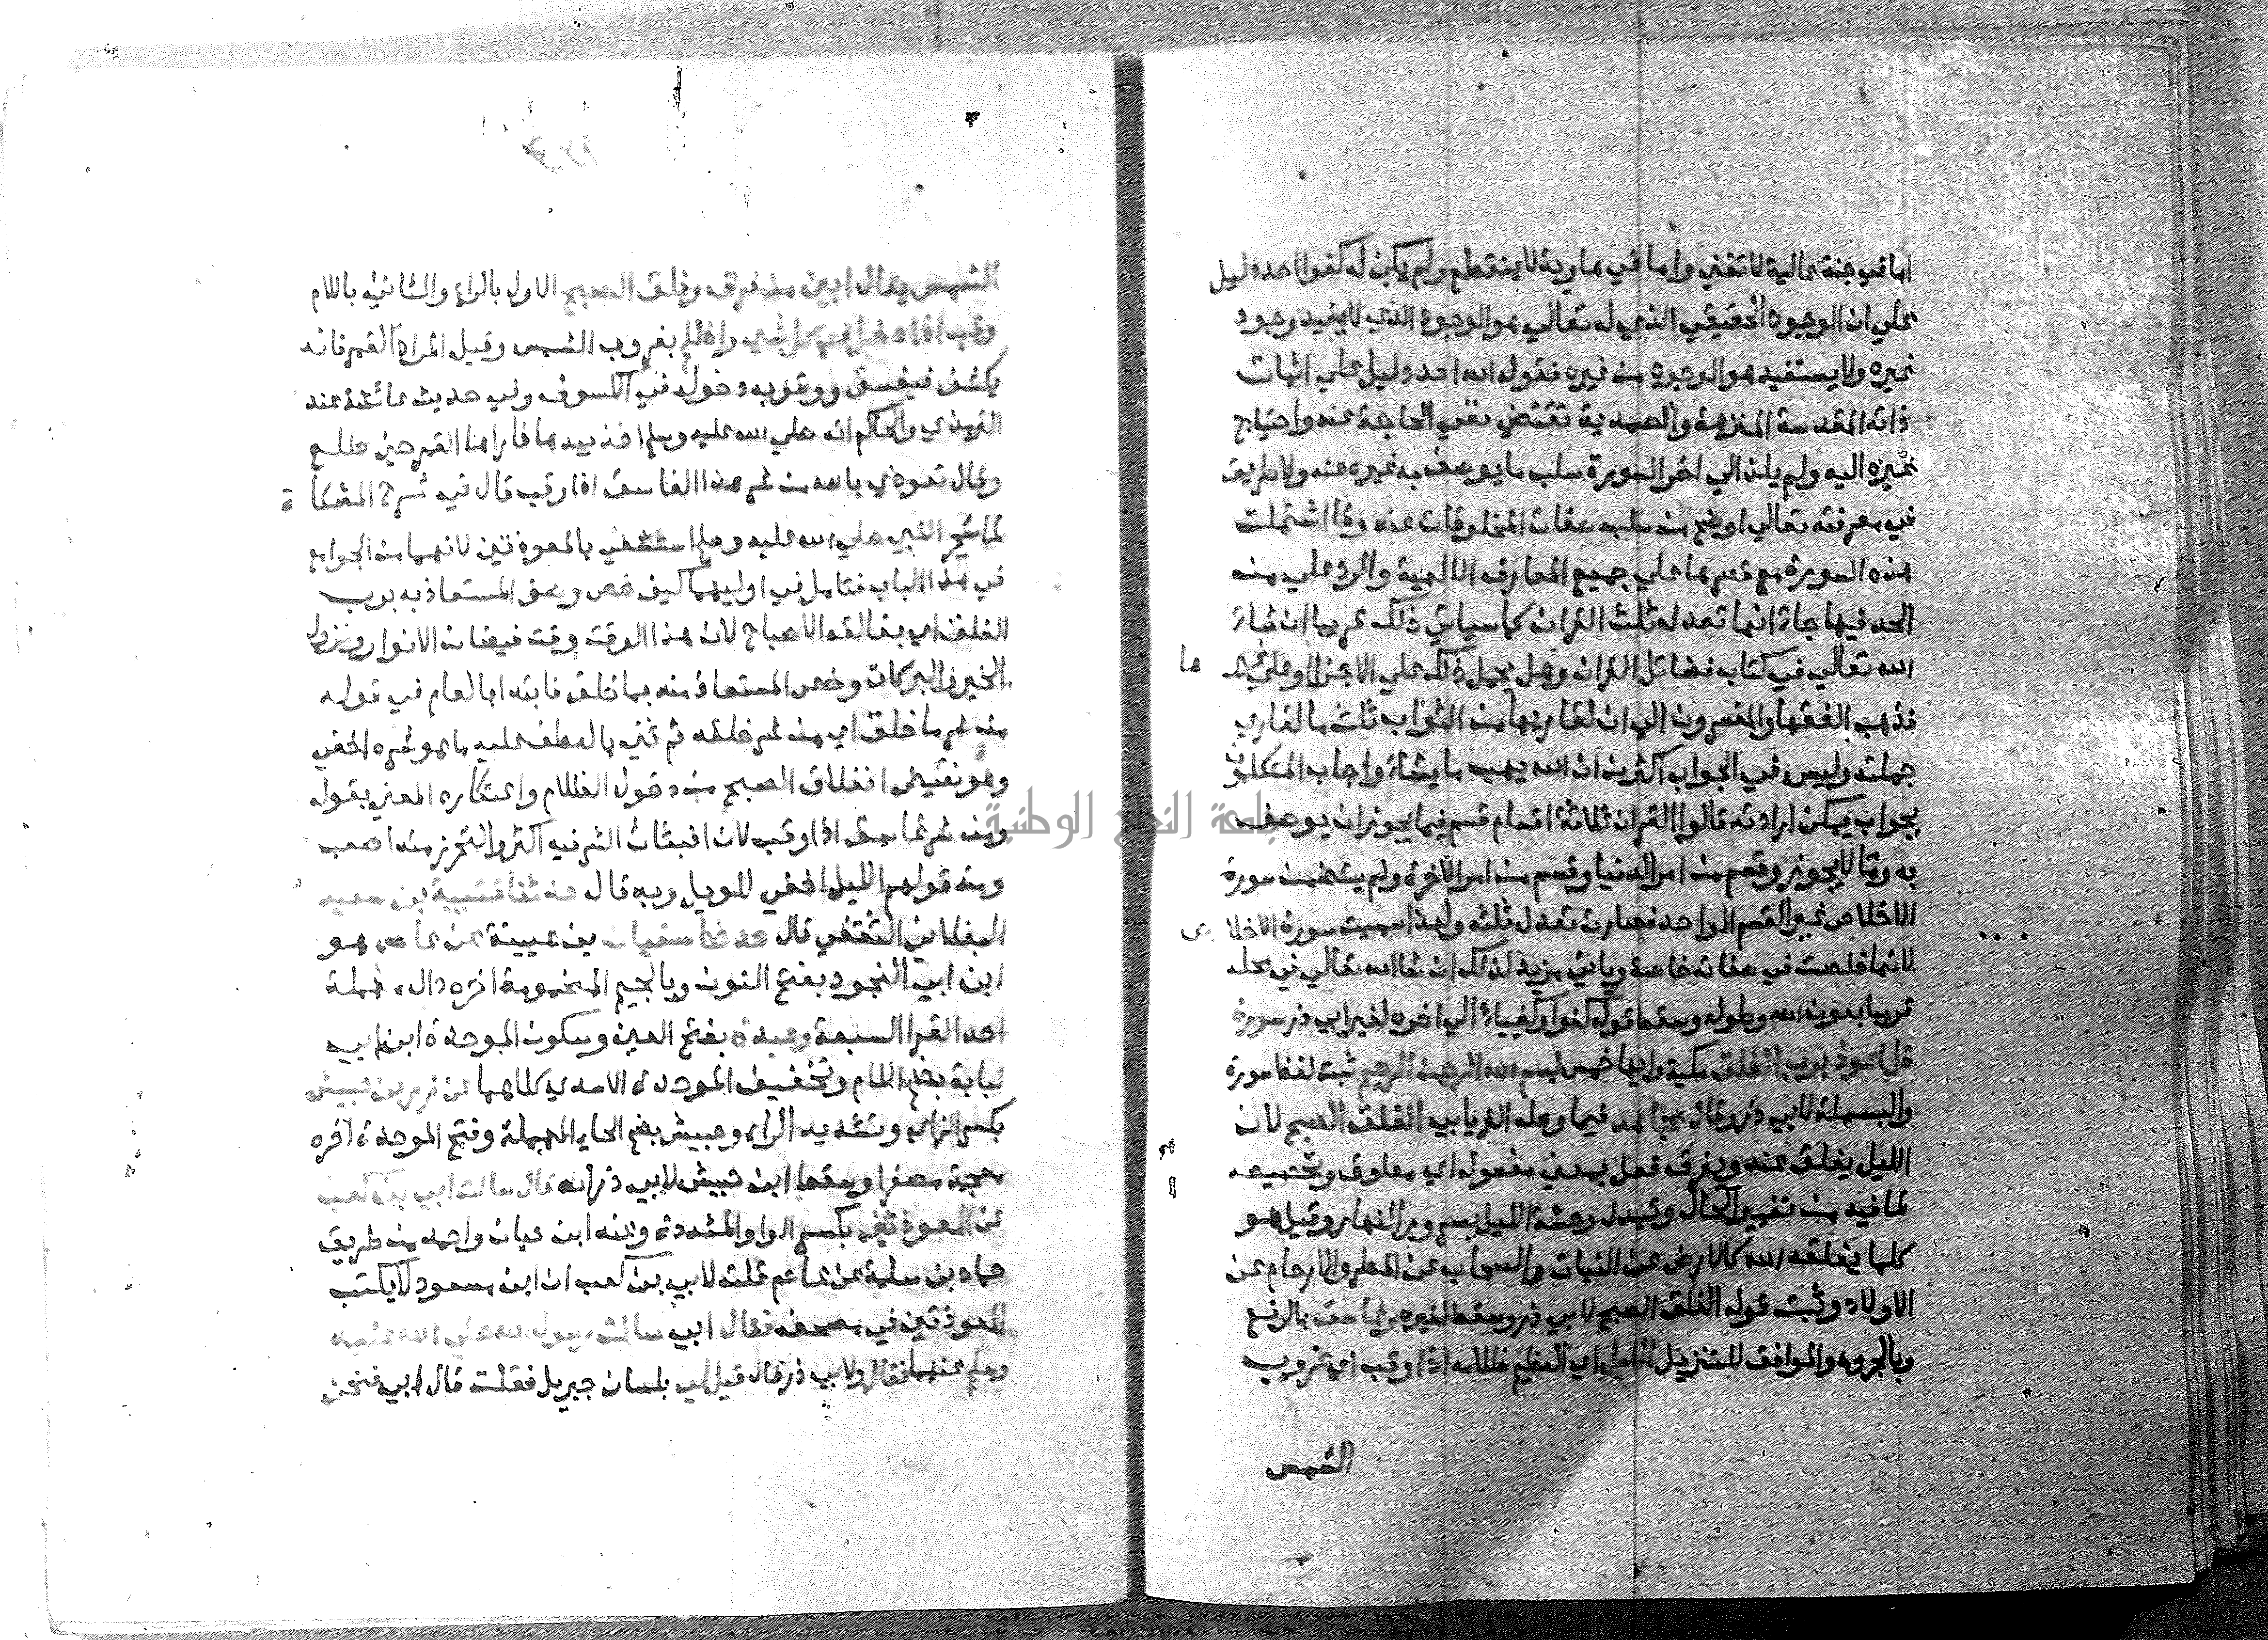 اما في جنة عالية لا تفنى واما في هاوية لا ينقطع ولم يكن له كفوا احد دليل
على ان الوجود الحقيقي الذي له تعالى هو الوجود الذي لا يفيد وجود
غيره ولا يستفيد هو الوجود من غيره فقوله الله احد دليل على اثبات
ذاته المقدسة المنزهة والصمدية تقتضي نفي الحاجة عنه واحتياج
غيره اليه ولم يلد الى اخر السورة سلب ما يوصف به غيره عنه ولا طريق
في معرفته تعالى اوضح من سلب صفات المخلوقات عنه ولما اشتملت
هذه السورة مع قصرها على جميع المعارف الالهية والرد على من
الحد فيها جاء انها تعدل ثلث القران كما سياتي ذلك قريبا ان شاء
الله تعالى في كتاب فضائل القران وهل يحمل ذلك على الاجزاء او على غير ها
فذهب الفقها والمفسرون الى ان لقاريها من الثواب ثلث ما لقاري
جملته وليس في الجواب اكثر من ان الله يهب ما يشاء واجاب المتكلمون
بجواب يمكن ارادته قالوا القران ثلاثة اقسام قسم فيما يجوز ان يوصف
به وما لا يجوز وقسم من امر الدنيا وقسم من امر الاخرة ولم يتضمن سورة
الاخلاص غير القسم الواحد فصارت تعدل ثلثه ولهذا سميت سورة الاخلاص
لانها خلصت في صفاته خاصة وياتي مزيد لذلك ان شا الله تعالى في محله
قريبا بعون الله وطوله وسقط قوله كفوا وكفيا الى اخره لغير ابي ذر سورة
قل اعوذ برب الفلق مكية وايها خمس بسم الله الرحمن الرحيم ثبت لفظ سورة
والبسملة لابي ذر وقال مجاهد فيما وصله الفريابي الفلق الصبح لان
الليل يفلق عنه ويفرق فعل بمعنى مفعول اي مفلوق وتخصيصه
لما فيه من تغيير الحال وتبدل وحشة الليل بسرور النهار وقيل هو
كلما يفلقه الله كالارض عن النبات والسحاب عن المطر والارحام عن
الاولاد وثبت قوله الفلق الصبح لابي ذر وسقط لغيره وغاسق بالرفع
وبالجر وهو الموافق للتنزيل الليل اي العظيم ظلامه اذا وقب اي غروب
الشمس
الشمس يقال ابين من فرق وفلق الصبح الاول بالراء والثاني باللام
وقب اذا دخل في كل شيء واظلم بغروب الشمس وقيل المراد القمر فانه
يكسف فيغسق ووقوبه دخوله في الكسوف وفي حديث عائشة عند
الترمذي والحاكم انه صلى الله عليه وسلم اخذ بيدها فاراها القمر حين طلع
وقال تعوذي بالله من شر هذا الغاسق اذا وقب قال في شرح المشكاة
لما سحر النبي صلى الله عليه وسلم استشفى بالمعوذتين لانهما من الجوامع
في هذا الباب فتامل في اوليهما كيف خص وصف المستعاذ به برب
الفلق اي بخالق الاصباح لان هذا الوقت وقت فيضان الانوار ونزول
الخير والبركات وخص المستعاذ منه بما خلق فابتدا بالعام في قوله
من شر ما خلق اي من شر خلقه ثم ثنى بالعطف عليه ما هو شره اخفى
وهو نقيض انفلاق الصبح من دخول الظلام واعتكاره المعني بقوله
ومن شر غاسق اذا وقب لان انبثاث الشر فيه اكثر والتحرز منه اصعب
ومنه قولهم الليل اخفى للويل وبه قال حدثنا قتيبة بن سعيد
البغلاني الثقفي قال حدثنا سفيان بن عيينة عن عاصم هو
ابن ابي النجود بفتح النون وبالجيم المضمومة اخره دال مهملة
احد القرا السبعة وعبدة بفتح العين وسكون الموحدة ابن ابي
لبابة بضم اللام وتخفيف الموحدة الاسدي كلاهما عن زر بن حبيش
بكسر الزاي وتشديد الراء وحبيش بضم الحاء المهملة وفتح الموحدة اخره
معجمة مصغرا وسقط ابن حبيش لابي ذر انه قال سالت ابي بن كعب
عن المعوذتين بكسر الواو المشددة وعند ابن حبان واحمد من طريق
حماد بن سلمة عن عاصم قلت لابي بن كعب ان ابن مسعود لا يكتب
المعوذتين في مصحفه فقال ابي سالت رسول الله صلى الله عليه
وسلم عنهما فقال ولابي ذر قال قيل لي بلسان جبريل فقلت قال ابي فنحن
جامعة النجاح الوطنية